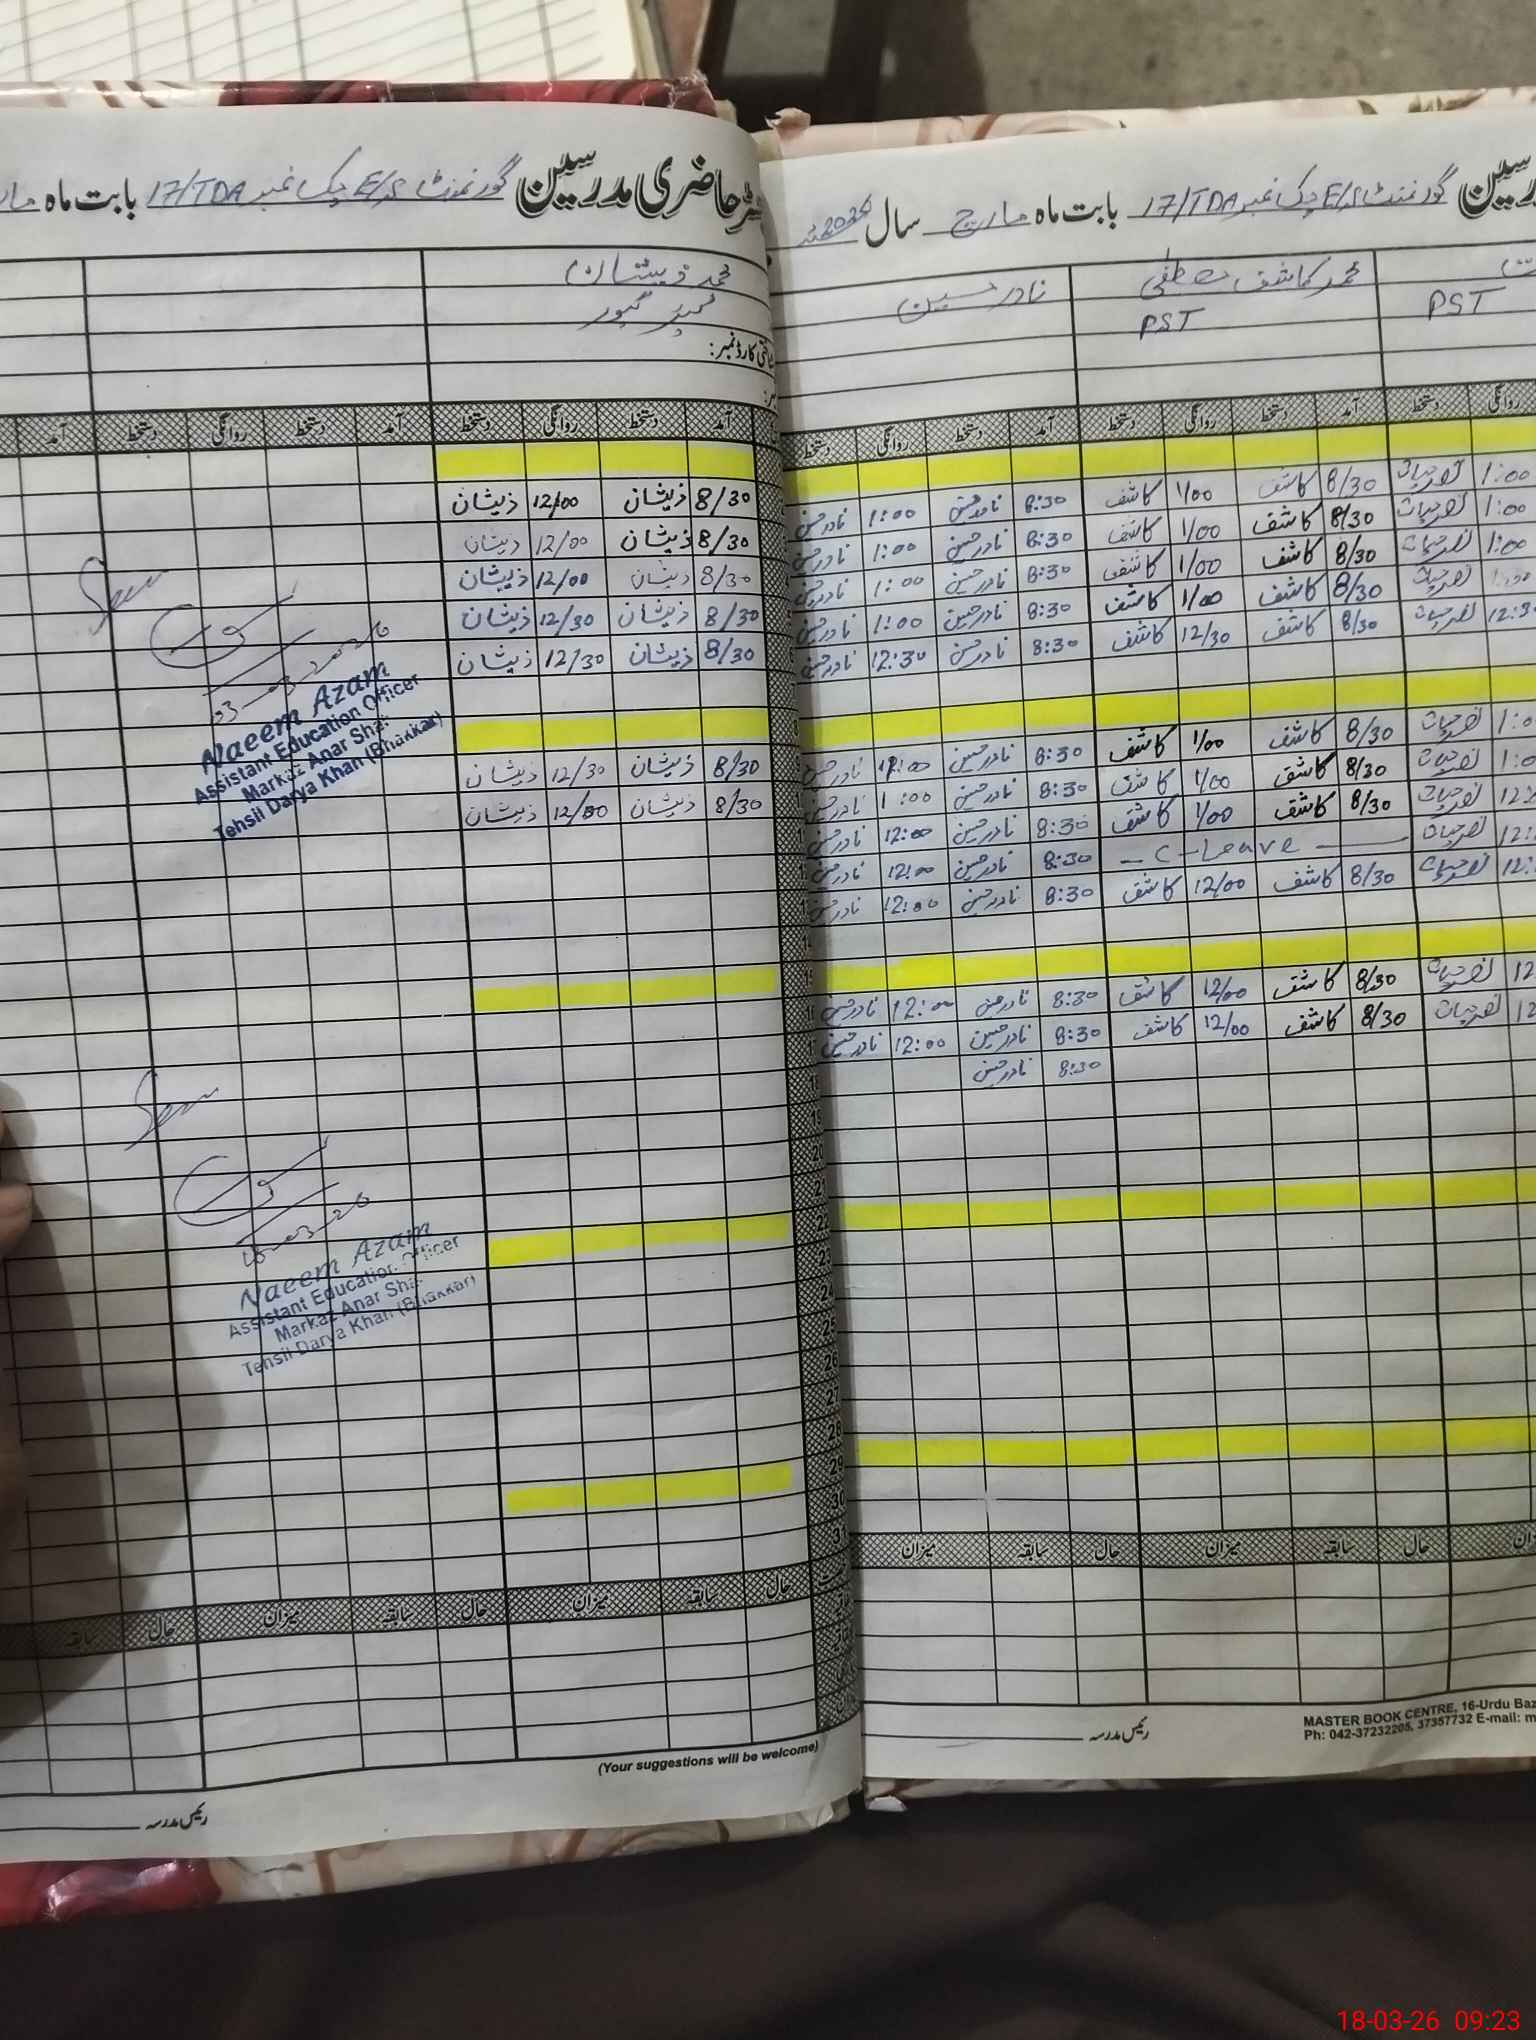 رجسٹر حاضری مدرسین گورنمنٹ E/S چک نمبر 17/TDA بابت ماہ
محمد ذیشان
کارڈ نمبر:
آمد دستخط روانگی دستخط آمد دستخط روانگی دستخط آمد
8/30 ذیشان 12/00 ذیشان
8/30 ذیشان 12/00 ذیشان
8/30 ذیشان 12/00 ذیشان
8/30 ذیشان 12/30 ذیشان
8/30 ذیشان 12/30 ذیشان
8/30 ذیشان 12/30 ذیشان
8/30 ذیشان 12/00 ذیشان
Naeem Azam
Assistant Education Officer
Markaz Anar Shah
Tehsil Darya Khan (Bhakkar)
Naeem Azam
Assistant Education Officer
Markaz Anar Sha
Tehsil Darya Khan (Bhakkar)
حال سابقہ میزان حال سابقہ میزان حال سابقہ
(Your suggestions will be welcome)
رئیس مدرسہ
رسین گورنمنٹ E/S چک نمبر 17/TDA بابت ماہ مارچ سال 2026
محمد کاشف مصطفٰی نادر حسین
PST PST
روانگی دستخط آمد دستخط روانگی دستخط آمد دستخط روانگی دستخط
1:00 نصر حیات 8/30 کاشف 1/00 کاشف 8:30 نادر حسین 1:00 نادر حسین
1:00 نصر حیات 8/30 کاشف 1/00 کاشف 8:30 نادر حسین 1:00 نادر حسین
1:00 نصر حیات 8/30 کاشف 1/00 کاشف 8:30 نادر حسین 1:00 نادر حسین
نصر حیات 8/30 کاشف 1/00 کاشف 8:30 نادر حسین 1:00 نادر حسین
12:3 نصر حیات 8/30 کاشف 12/30 کاشف 8:30 نادر حسین 12:30 نادر حسین
1:0 نصر حیات 8/30 کاشف 1/00 کاشف 8:30 نادر حسین نادر حسین
1:0 نصر حیات 8/30 کاشف 1/00 کاشف 8:30 نادر حسین 1:00 نادر حسین
12: نصر حیات 8/30 کاشف 1/00 کاشف 8:30 نادر حسین 12:00 نادر حسین
12: نصر حیات — C-Leave — 8:30 نادر حسین 12:00 نادر حسین
12: نصر حیات 8/30 کاشف 12/00 کاشف 8:30 نادر حسین 12:00 نادر حسین
12 نصر حیات 8/30 کاشف 12/00 کاشف 8:30 نادر حسین 12:00 نادر حسین
12 نصر حیات 8/30 کاشف 12/00 کاشف 8:30 نادر حسین 12:00 نادر حسین
8:30 نادر حسین
19
20
21
22
23
24
25
26
27
28
29
30
31
حال سابقہ میزان حال سابقہ میزان
رئیس مدرسہ
MASTER BOOK CENTRE, 16-Urdu Baz
Ph: 042-37232205, 37357732 E-mail: m
18-03-26 09:23